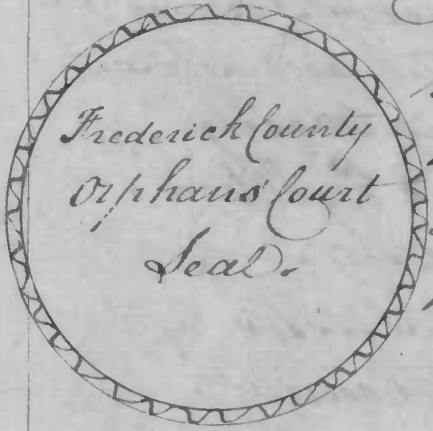 Frederick County
Orphans' Court
Seal.